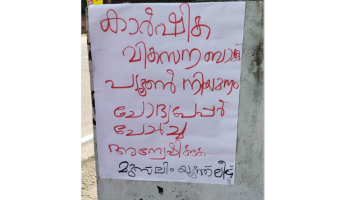 കാർഷിക
വികസന ബാങ്ക്
പ്യൂൺ നിയമനം
ചോദ്യപേപ്പർ
ചോർച്ച
അന്വേഷിക്കുക
മുസ്ലിം യൂത്ത് ലീഗ്